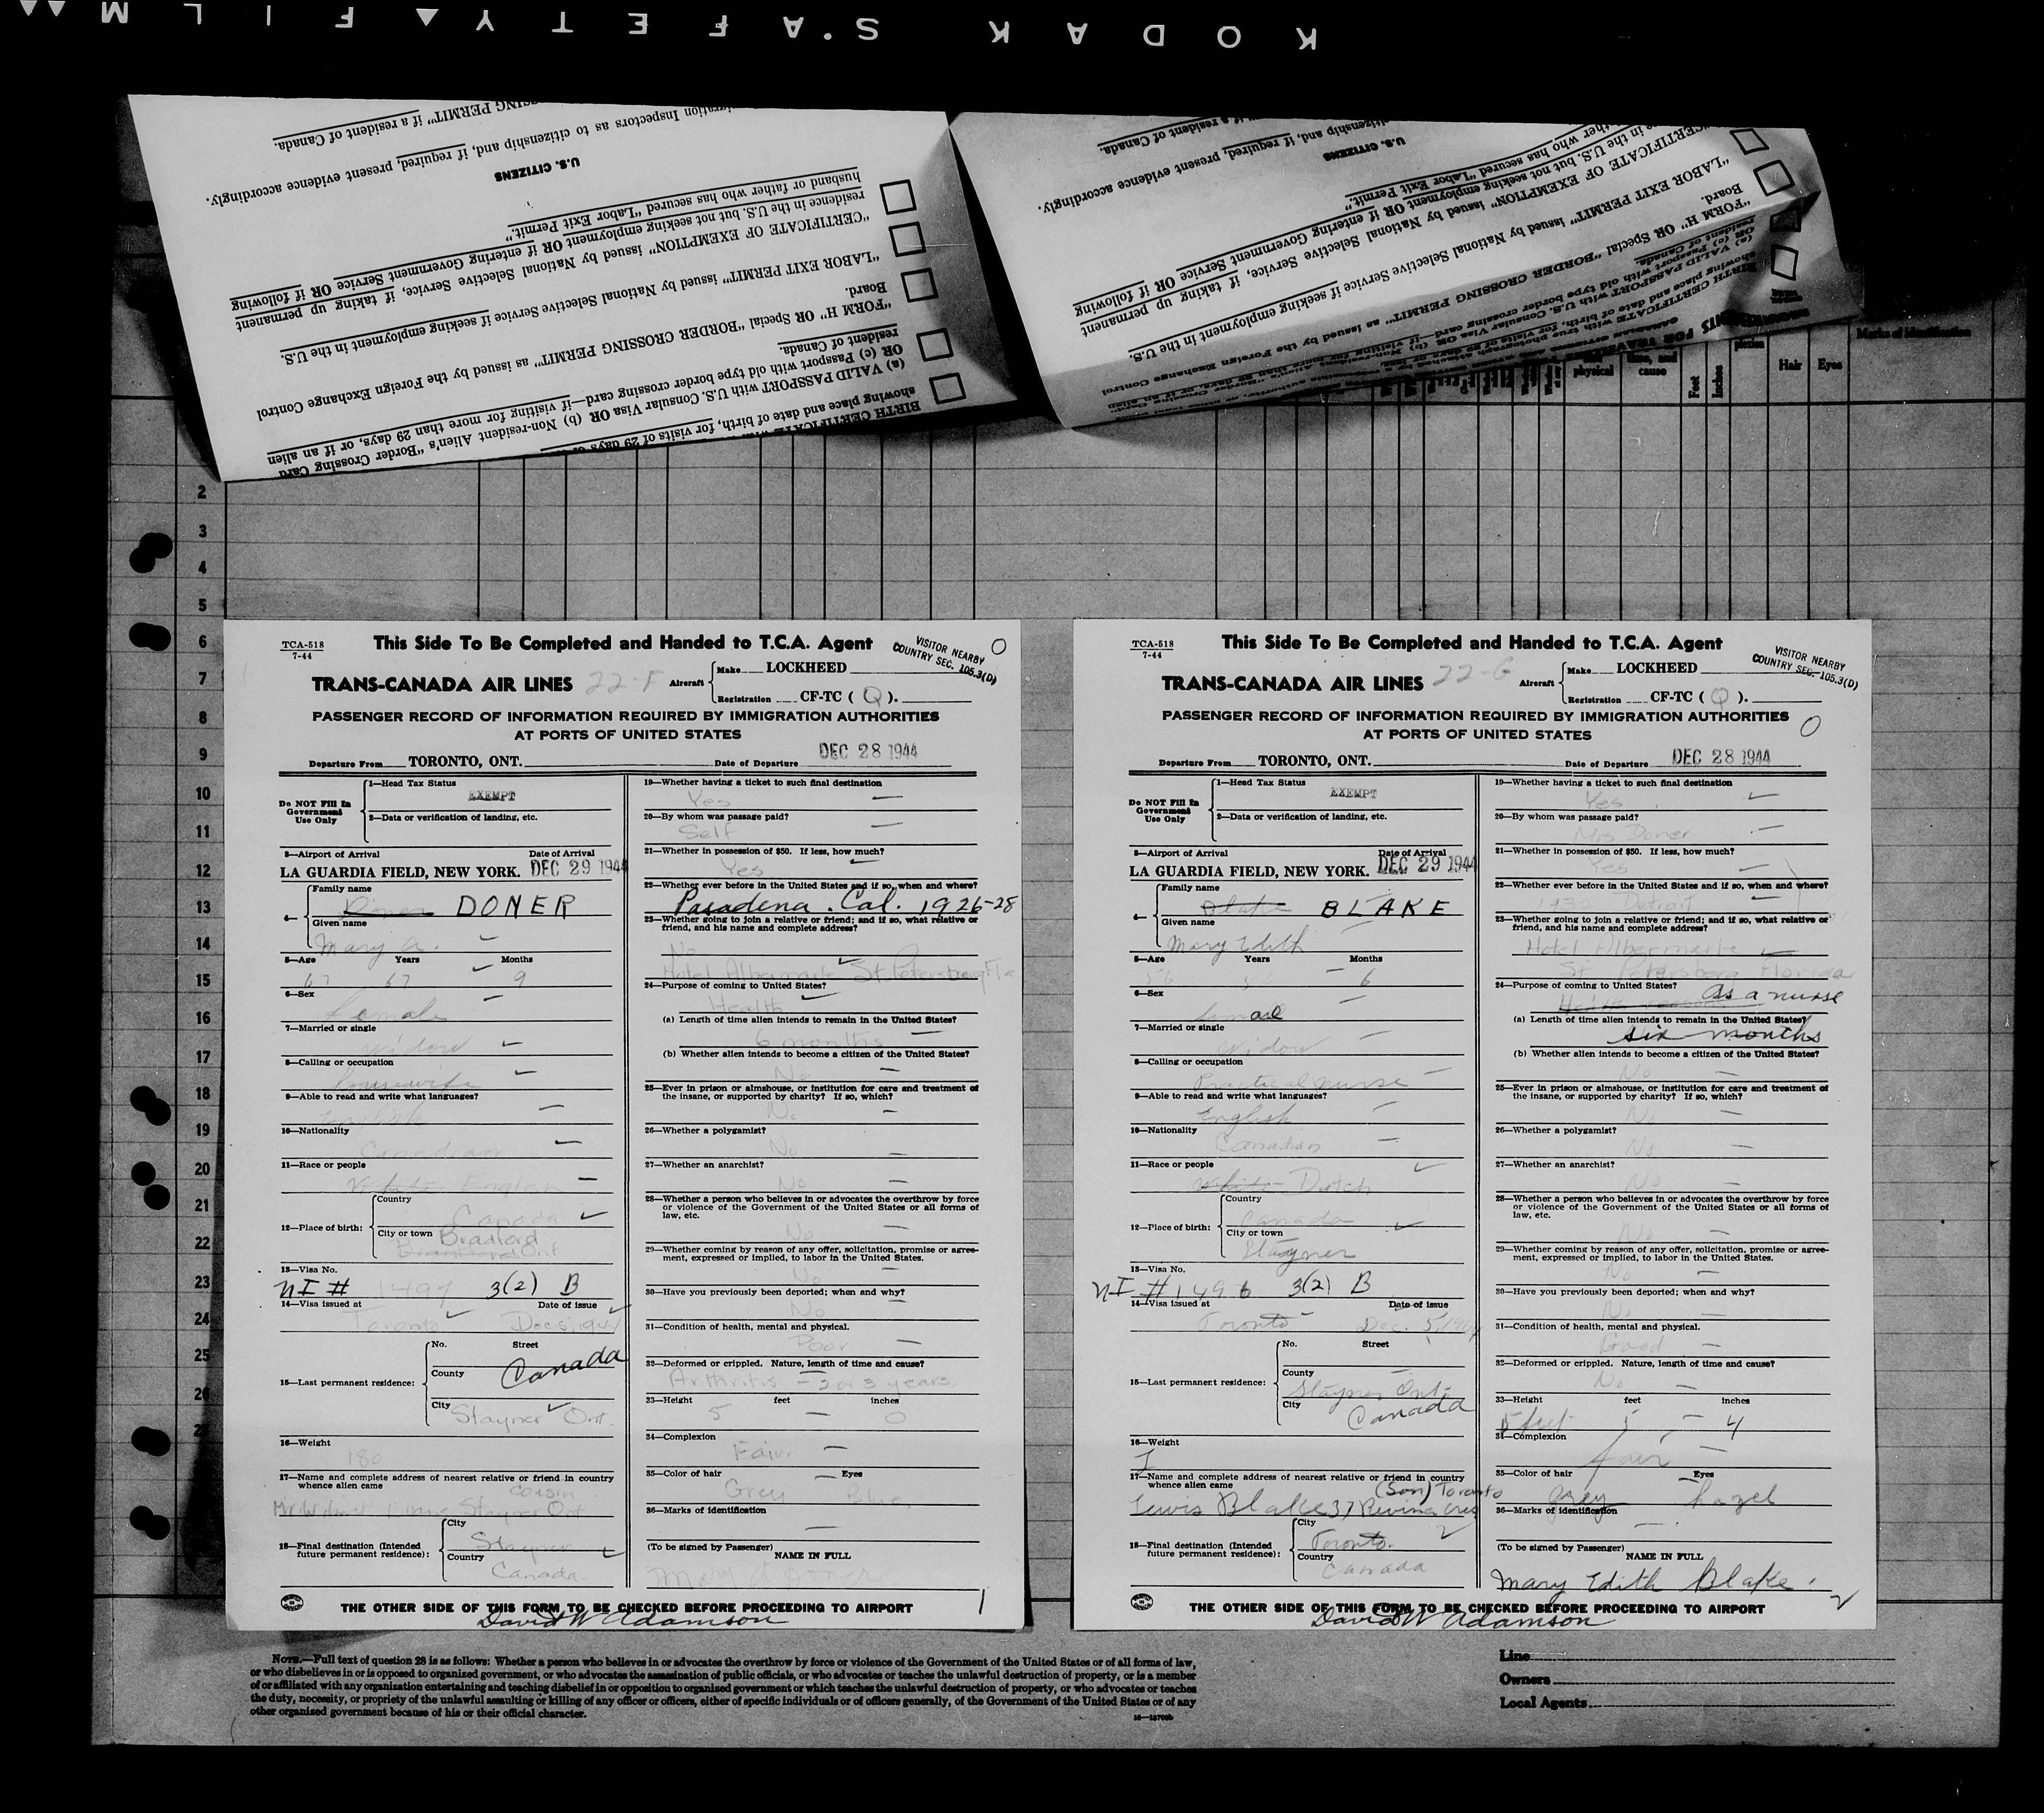 KODAK S'AFETY FILM
husband or father who has secured "Labor Exit Permit."
residence in the U.S. but not seeking employment OR if entering Government Service OR if following
"CERTIFICATE OF EXEMPTION" issued by National Selective Service, if taking up permanent
"LABOR EXIT PERMIT" issued by National Selective Service if seeking employment in the U.S.
Board.
"FORM H" OR Special "BORDER CROSSING PERMIT" as issued by the Foreign Exchange Control
resident of Canada.
OR (c) Passport with old type border crossing card—if visiting for more than 29 days, or if an alien
(a) VALID PASSPORT with U.S. Consular Visa OR (b) Non-resident Alien's "Border Crossing Card
showing place and date of birth, for visits of 29 days
U.S. CITIZENS
Inspectors as to citizenship and, if required, present evidence accordingly.
PERMIT" if a resident of Canada.
physical
time, and cause
Feet
Inches
Hair
Eyes
Marks of Identification
2
3
4
5
6
7
8
9
10
11
12
13
14
15
16
17
18
19
20
21
22
23
24
25
26
TCA-518
7-44
This Side To Be Completed and Handed to T.C.A. Agent
VISITOR NEARBY
COUNTRY SEC. 105.3(D)
TRANS-CANADA AIR LINES 22-F
Aircraft
Make LOCKHEED
Registration CF-TC ( Q ).
PASSENGER RECORD OF INFORMATION REQUIRED BY IMMIGRATION AUTHORITIES
AT PORTS OF UNITED STATES
Departure From TORONTO, ONT. Date of Departure DEC 28 1944
Do NOT Fill In Government Use Only
1—Head Tax Status
EXEMPT
2—Data or verification of landing, etc.
3—Airport of Arrival Date of Arrival
LA GUARDIA FIELD, NEW YORK. DEC 29 1944
4—
Family name
Doner DONER
Given name
Mary A.
5—Age Years Months
67 67 9
6—Sex
Female
7—Married or single
Widow
8—Calling or occupation
Housewife
9—Able to read and write what languages?
English
10—Nationality
Canadian
11—Race or people
White English
12—Place of birth:
Country
Canada
City or town Bradford
Ont
13—Visa No.
NI # 1497 3(2) B
14—Visa issued at Date of issue
Toronto Dec 5, 1944
15—Last permanent residence:
No. Street
County Canada
City Stayner Ont.
16—Weight
180
17—Name and complete address of nearest relative or friend in country
whence alien came
cousin
Stayner Ont
18—Final destination (Intended
future permanent residence):
City
Stayner
Country
Canada.
19—Whether having a ticket to such final destination
Yes
20—By whom was passage paid?
Self
21—Whether in possession of $50. If less, how much?
Yes
22—Whether ever before in the United States and if so, when and where?
Pasadena. Cal. 1926-28
23—Whether going to join a relative or friend; and if so, what relative or
friend, and his name and complete address?
No
Hotel Albermarle St Petersburg Fla
24—Purpose of coming to United States?
Health
(a) Length of time alien intends to remain in the United States?
6 months
(b) Whether alien intends to become a citizen of the United States?
No
25—Ever in prison or almshouse, or institution for care and treatment of
the insane, or supported by charity? If so, which?
No
26—Whether a polygamist?
No
27—Whether an anarchist?
No
28—Whether a person who believes in or advocates the overthrow by force
or violence of the Government of the United States or all forms of
law, etc.
No
29—Whether coming by reason of any offer, solicitation, promise or agree-
ment, expressed or implied, to labor in the United States.
No
30—Have you previously been deported; when and why?
No
31—Condition of health, mental and physical.
Poor
32—Deformed or crippled. Nature, length of time and cause?
Arthritis - 2 or 3 years
33—Height feet inches
5 0
34—Complexion
Fair
35—Color of hair Eyes
Grey Blue
36—Marks of identification
(To be signed by Passenger)
NAME IN FULL
Mary A Doner
THE OTHER SIDE OF THIS FORM TO BE CHECKED BEFORE PROCEEDING TO AIRPORT
David W Adamson
1
TCA-518
7-44
This Side To Be Completed and Handed to T.C.A. Agent
VISITOR NEARBY
COUNTRY SEC. 105.3(D)
TRANS-CANADA AIR LINES 22-G
Aircraft
Make LOCKHEED
Registration CF-TC ( Q ).
PASSENGER RECORD OF INFORMATION REQUIRED BY IMMIGRATION AUTHORITIES
AT PORTS OF UNITED STATES
Departure From TORONTO, ONT. Date of Departure DEC 28 1944
Do NOT Fill In Government Use Only
1—Head Tax Status
EXEMPT
2—Data or verification of landing, etc.
3—Airport of Arrival Date of Arrival
LA GUARDIA FIELD, NEW YORK. DEC 29 1944
4—
Family name
Blake BLAKE
Given name
Mary Edith
5—Age Years Months
56 6
6—Sex
female
7—Married or single
Widow
8—Calling or occupation
Practical nurse
9—Able to read and write what languages?
English
10—Nationality
Canadian
11—Race or people
White Dutch
12—Place of birth:
Country
Canada
City or town
Stayner
13—Visa No.
NI # 1496 3(2) B
14—Visa issued at Date of issue
Toronto Dec. 5, 1944
15—Last permanent residence:
No. Street
County
Stayner Ont.
City Canada
16—Weight
17—Name and complete address of nearest relative or friend in country
whence alien came
(Son) Toronto
Lewis Blake 37
18—Final destination (Intended
future permanent residence):
City
Toronto.
Country
Canada
19—Whether having a ticket to such final destination
Yes
20—By whom was passage paid?
Mrs Doner
21—Whether in possession of $50. If less, how much?
Yes
22—Whether ever before in the United States and if so, when and where?
1932 Detroit
23—Whether going to join a relative or friend; and if so, what relative or
friend, and his name and complete address?
Hotel Albermarle
St Petersburg Florida
24—Purpose of coming to United States?
as a nurse
(a) Length of time alien intends to remain in the United States?
six months
(b) Whether alien intends to become a citizen of the United States?
No
25—Ever in prison or almshouse, or institution for care and treatment of
the insane, or supported by charity? If so, which?
No
26—Whether a polygamist?
No
27—Whether an anarchist?
No
28—Whether a person who believes in or advocates the overthrow by force
or violence of the Government of the United States or all forms of
law, etc.
No
29—Whether coming by reason of any offer, solicitation, promise or agree-
ment, expressed or implied, to labor in the United States.
No
30—Have you previously been deported; when and why?
No
31—Condition of health, mental and physical.
Good
32—Deformed or crippled. Nature, length of time and cause?
No
33—Height feet inches
5 feet 5 4
34—Complexion
fair
35—Color of hair Eyes
Grey hazel
36—Marks of identification
(To be signed by Passenger)
NAME IN FULL
Mary Edith Blake.
THE OTHER SIDE OF THIS FORM TO BE CHECKED BEFORE PROCEEDING TO AIRPORT
David W Adamson
2
NOTE.—Full text of question 28 is as follows: Whether a person who believes in or advocates the overthrow by force or violence of the Government of the United States or of all forms of law,
or who disbelieves in or is opposed to organized government, or who advocates the assassination of public officials, or who advocates or teaches the unlawful destruction of property, or is a member
of or affiliated with any organization entertaining and teaching disbelief in or opposition to organized government or which teaches the unlawful destruction of property, or who advocates or teaches
the duty, necessity, or propriety of the unlawful assaulting or killing of any officer or officers, either of specific individuals or of officers generally, of the Government of the United States or of any
other organized government because of his or their official character.
Line
Owners
Local Agents